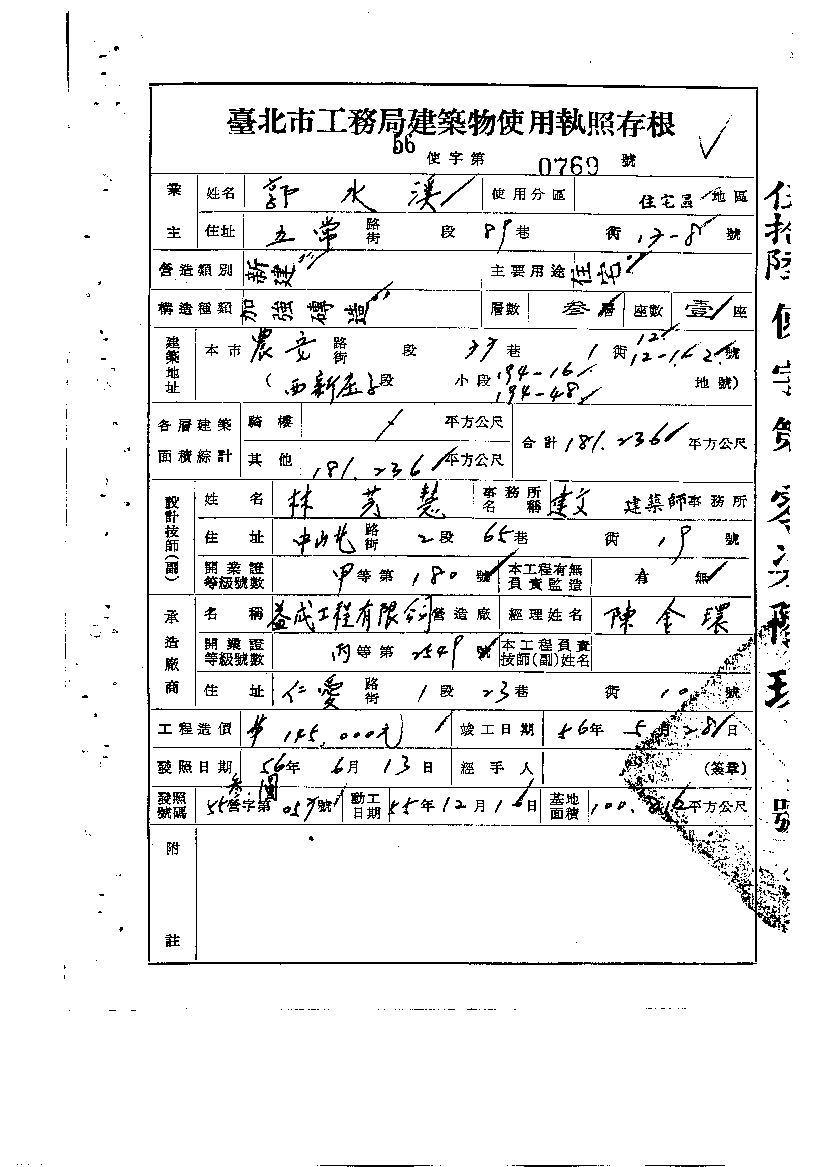 臺北市工務局建築物使用執照存根
56 使字第 0769 號
業主 姓名 郭水溪 使用分區 住宅區 地區
住址 五常 路街 段 89 巷 街 17-8 號
營造類別 新建 主要用途 住宅
構造種類 加強磚造 層數 叁層 座數 壹座
建築地址 本市 農安 路街 段 巷 1 街 12 12-1, 2 號
(西新庄子段 小段 194-16 194-48 地號)
各層建築面積綜計 騎樓 / 平方公尺 合計 181.236 平方公尺
其他 181.236 平方公尺
設計技師(副) 姓名 林 慧 事務所名稱 建文 建築師事務所
住址 中山北 路街 2 段 65 巷 街 19 號
開業證等級號數 甲等第 180 號 本工程有無負責監造 有 無
承造廠商 名稱 益成工程有限公司 營造廠 經理姓名 陳金環
開業證等級號數 丙等第 2549 號 本工程負責技師(副)姓名
住址 仁愛 路街 1 段 23 巷 街 10 號
工程造價 145,000元 竣工日期 56年 5月 28日
發照日期 56年 6月 13日 經手人 (簽章)
發照號碼 55營字第 號 動工日期 55年 12月 16日 基地面積 100. 平方公尺
附註
伍拾陸使字第零柒陸玖號